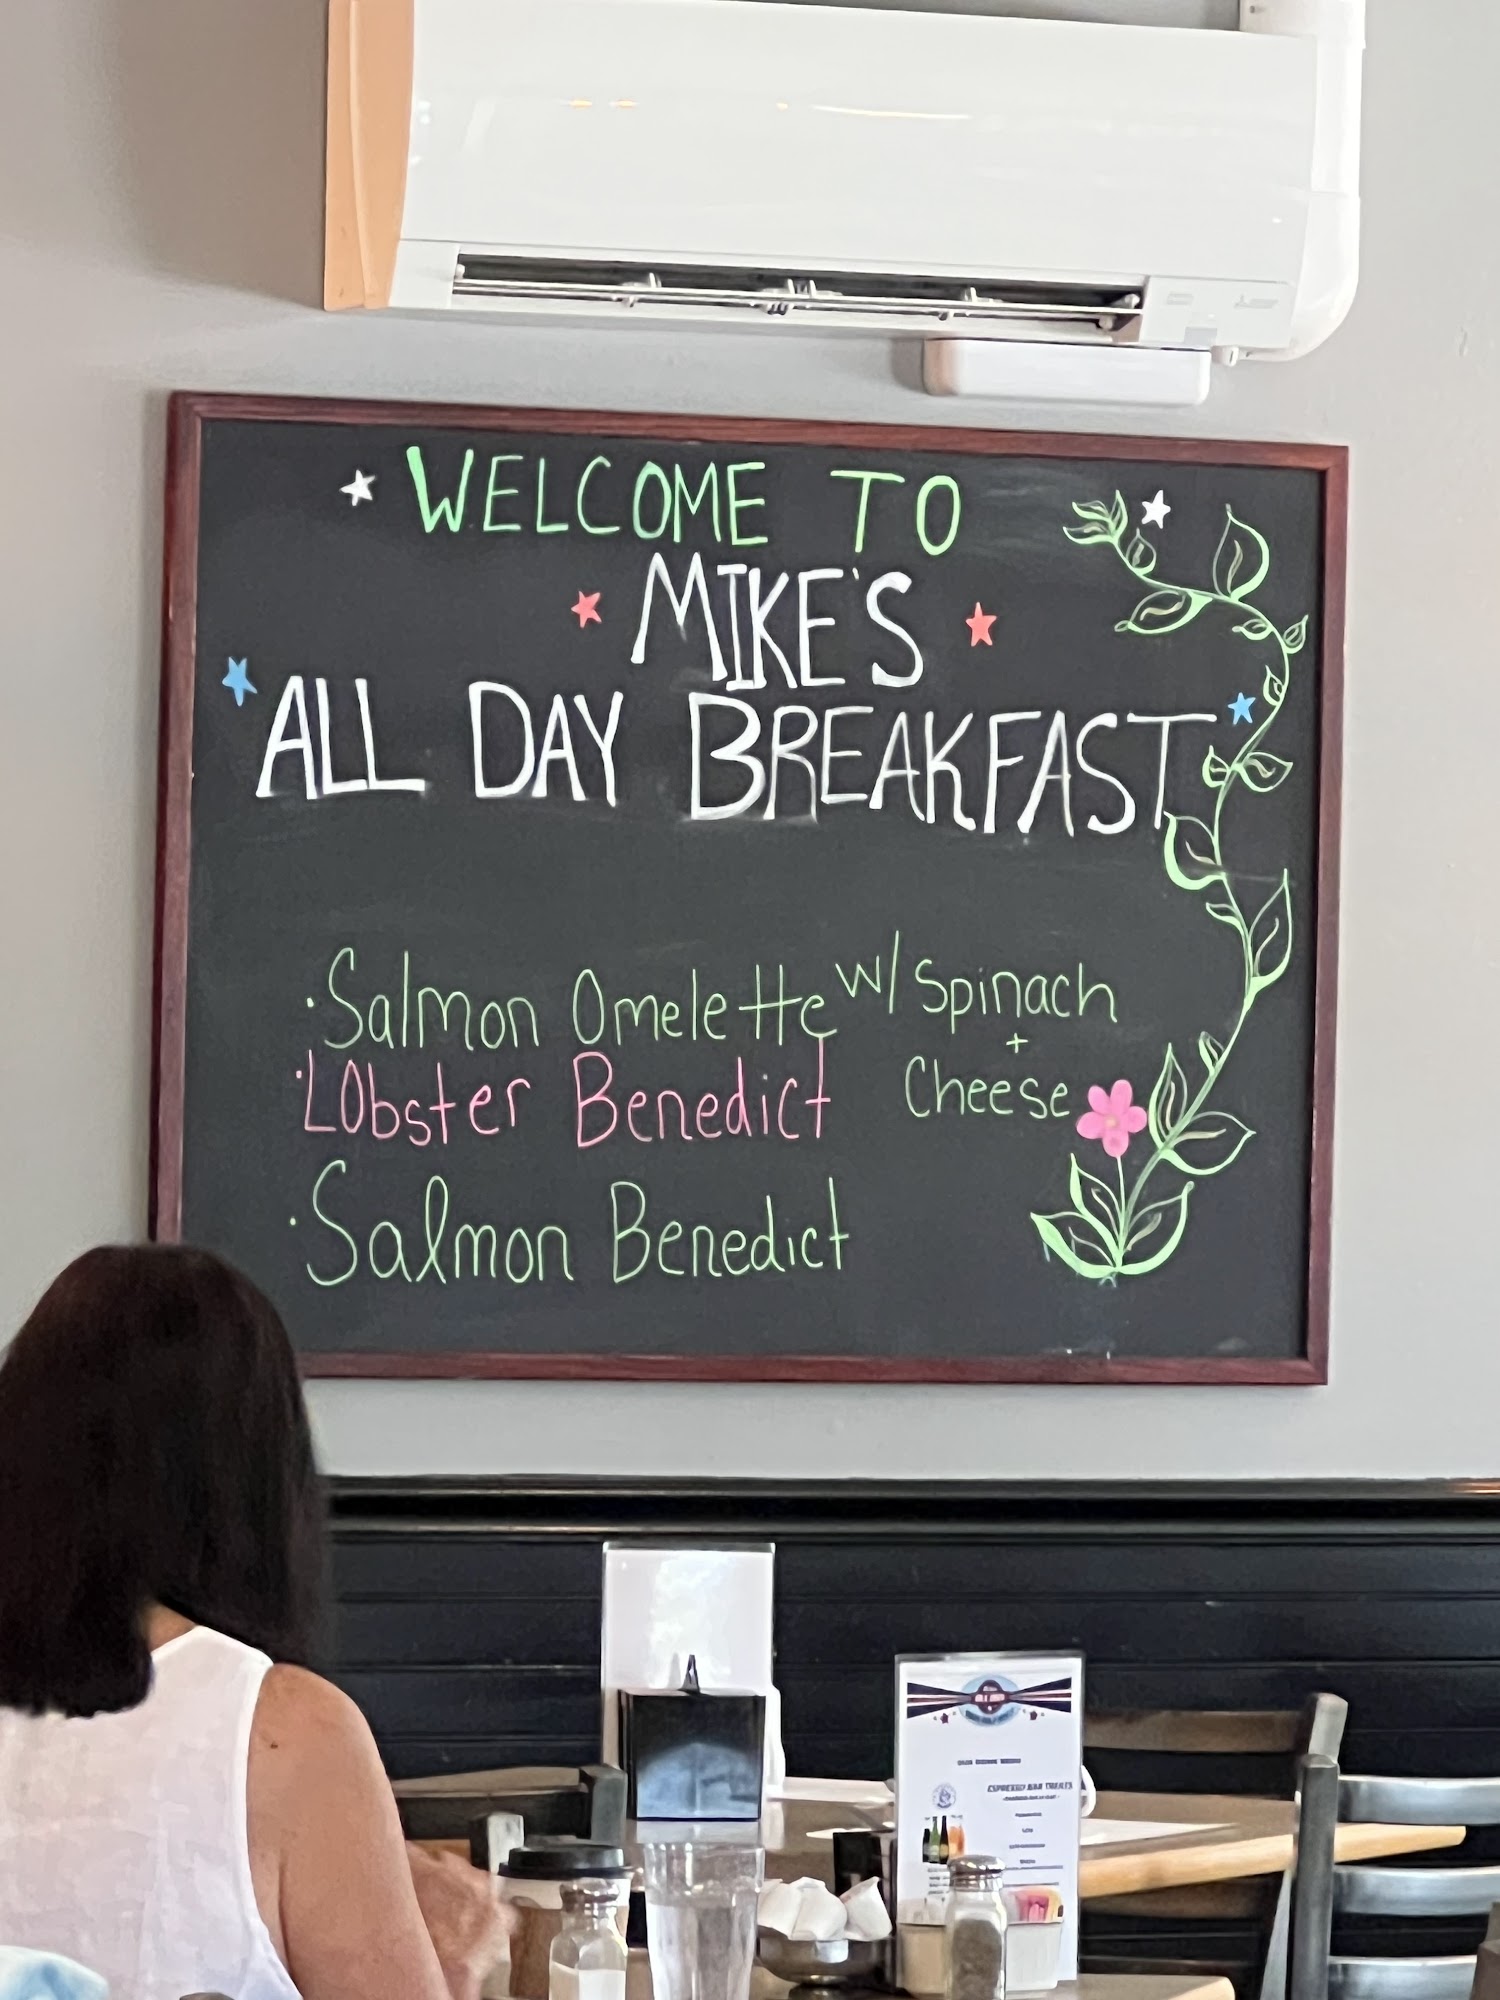 WELCOME TO
MIKE'S
ALL DAY BREAKFAST
·Salmon Omelette w/ Spinach
+
Cheese
·LObster Benedict
·Salmon Benedict
ESPRESSO BAR TREATS